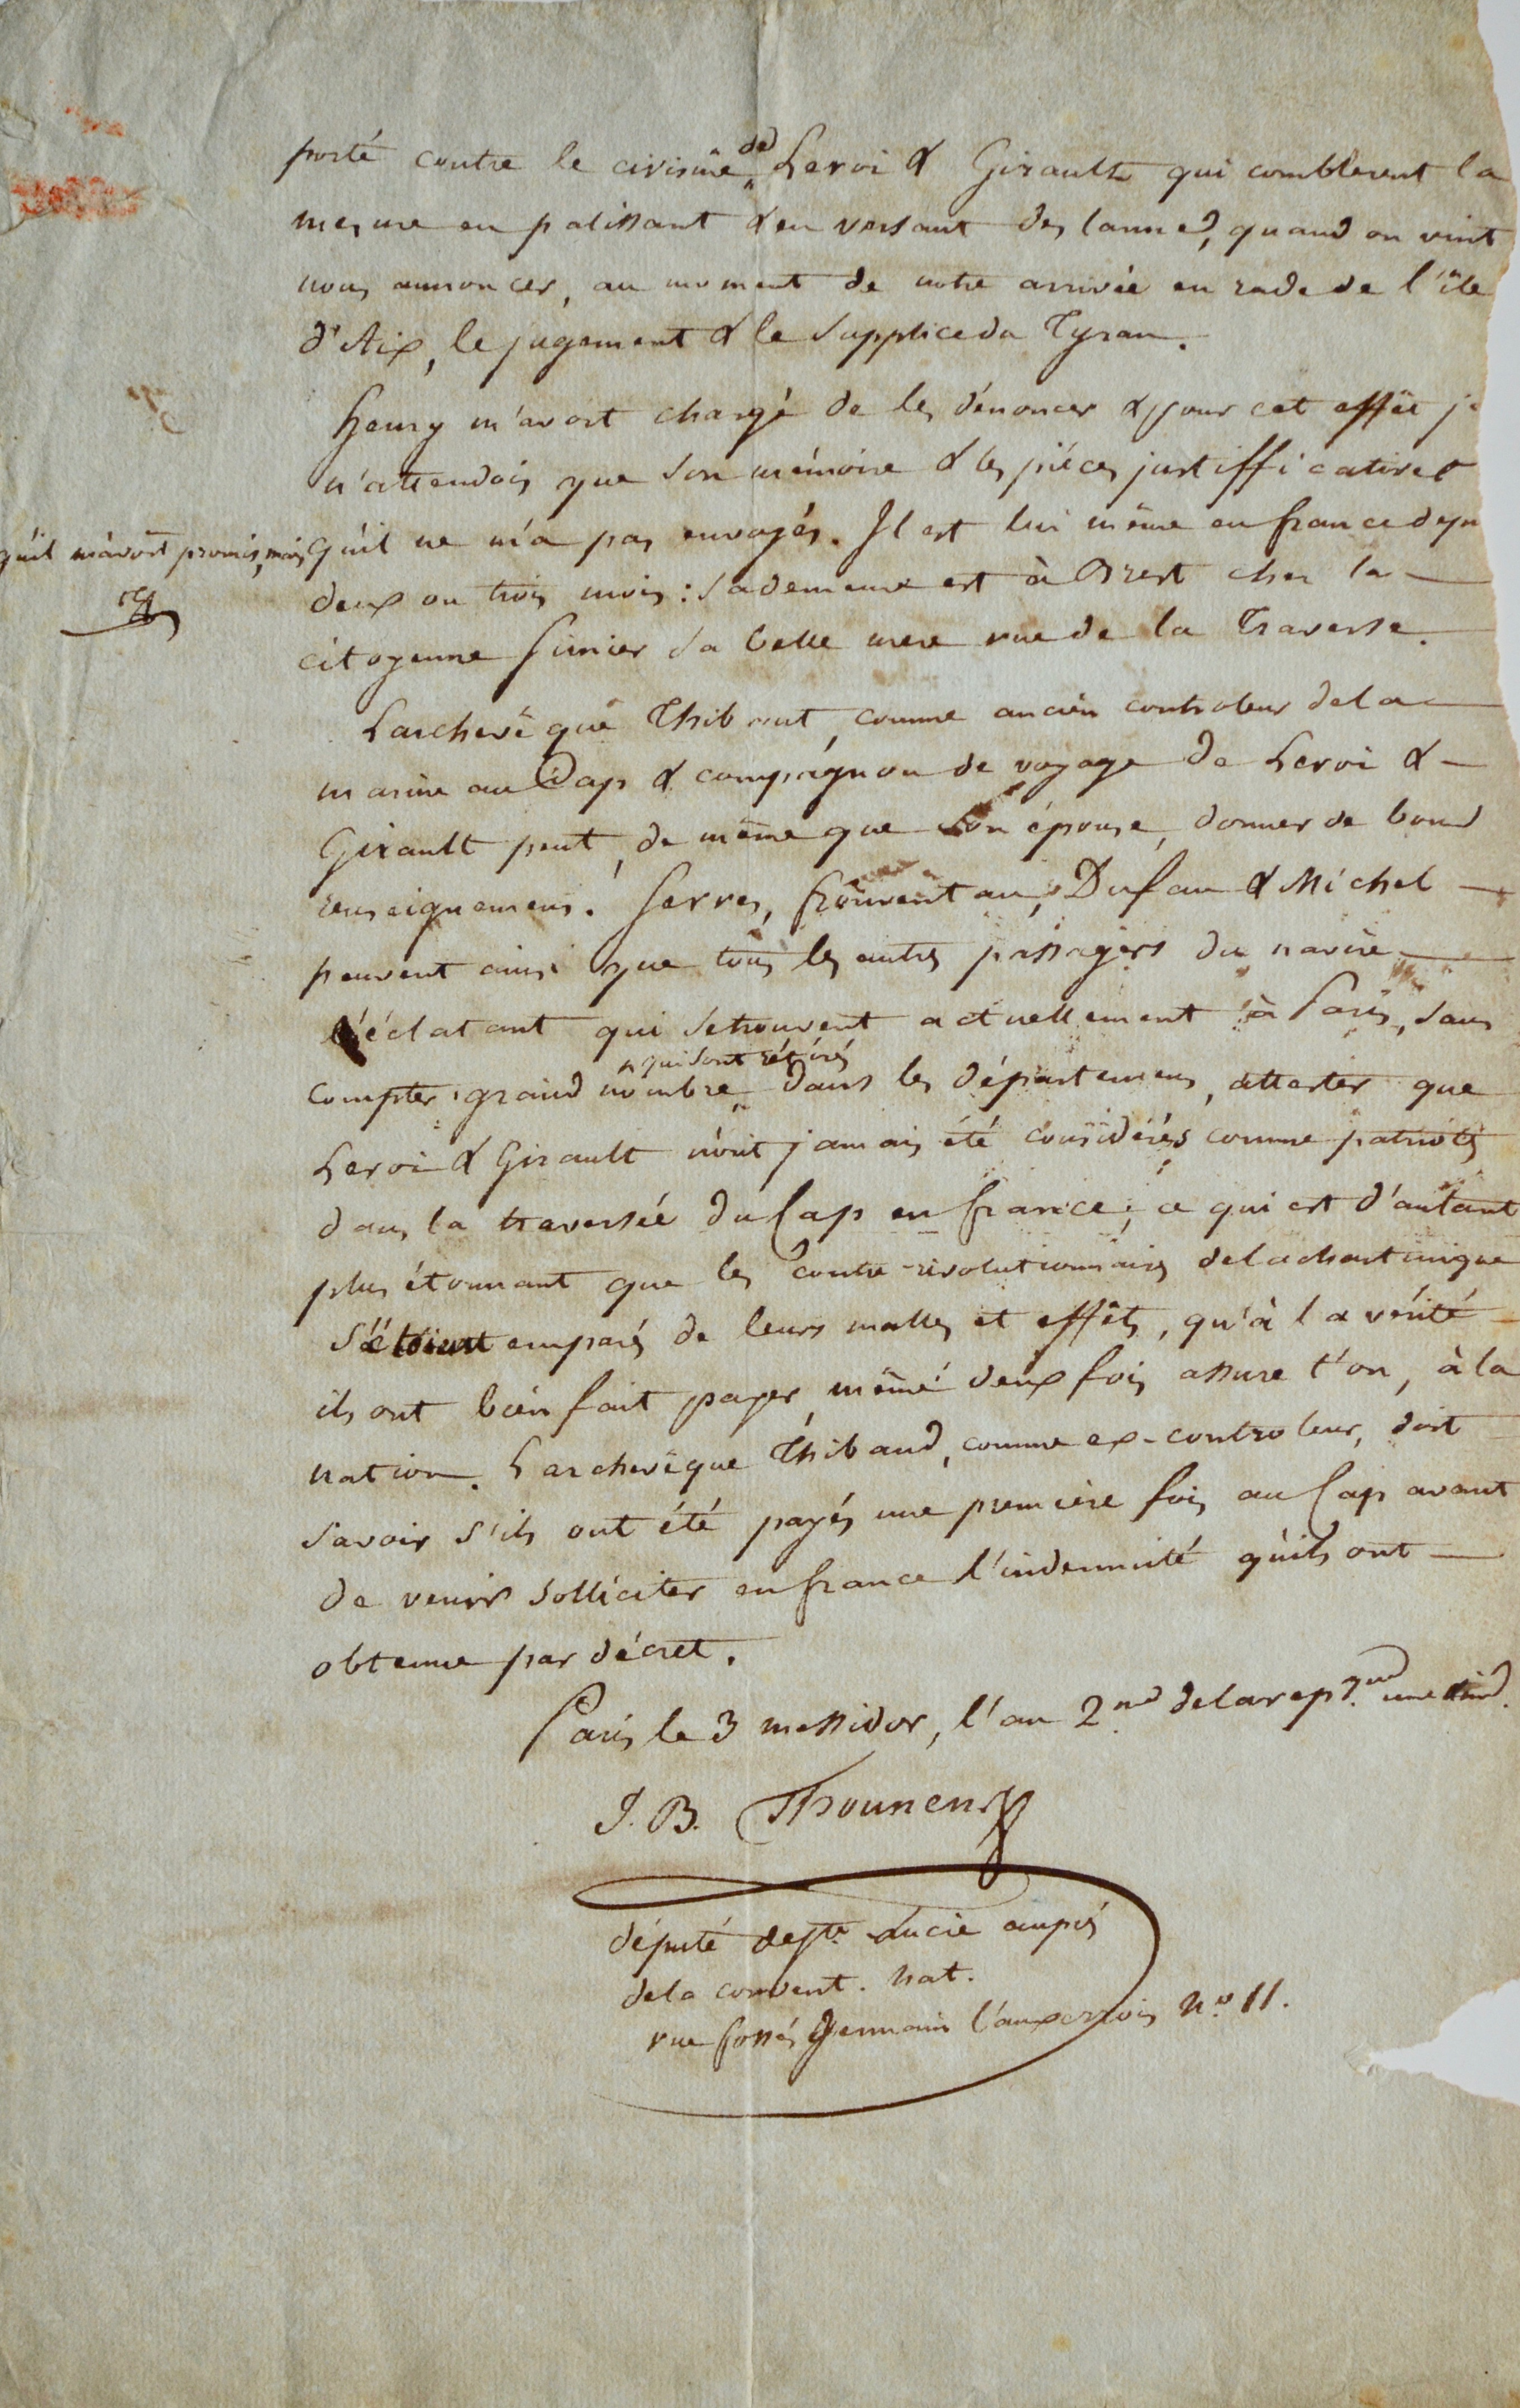 porté contre le civisme de Leroi & Girault qui comblerent la
mesure en palissant & en versant des larmes, quand on vint
nous annoncer, au moment de notre arrivée en rade de l'île
d'Aix, le jugement & le supplice du Tyran.
henry m'avoit chargé de les dénoncer & pour cet effêt je
n'attendois que son mémoire & les piéces justifficatives
qu'il m'avoit promis, mais qu'il ne m'a pas envoyés. Il est lui même en france depu
deux ou trois mois : sa demeure est à Brest chez la
citoyenne sa belle mere rue de la Traverse.
Larchevêque Thibaut, comme ancien controleur de la
marine au Cap & compagnon de voyage de Leroi &
Girault peut, de même que son épouse, donner de bons
renseignemens. Serres, Dufau & Michel
peuvent ainsi que tous les autres passagers du navire
l'éclatant qui se trouvent actuellement à Paris, sans
compter grand nombre qui sont rétirés dans les départemens, attester que
Leroi & Girault n'ont jamais été considérés comme patriotes
dans la traversée du Cap en france; ce qui est d'autant
plus étonnant que les contre-révolutionnaires de la Martinique
s'étoient emparés de leurs malles et effêts, qu'à la vérité
ils ont bien fait payer, même deux fois assure t'on, à la
nation. Larchevêque Thibaud, comme ex-controleur, doit
savoir s'ils ont été payés une première fois au Cap avant
de venir solliciter en france l'indemnité qu'ils ont
obtenue par décret.
Paris le 3 messidor, l'an 2nd de la rep.que une & ind.
J. B. Thounens
député de Ste Lucie auprès
de la convent. nat.
rue fossés Germain l'auxerrois n.o 11.